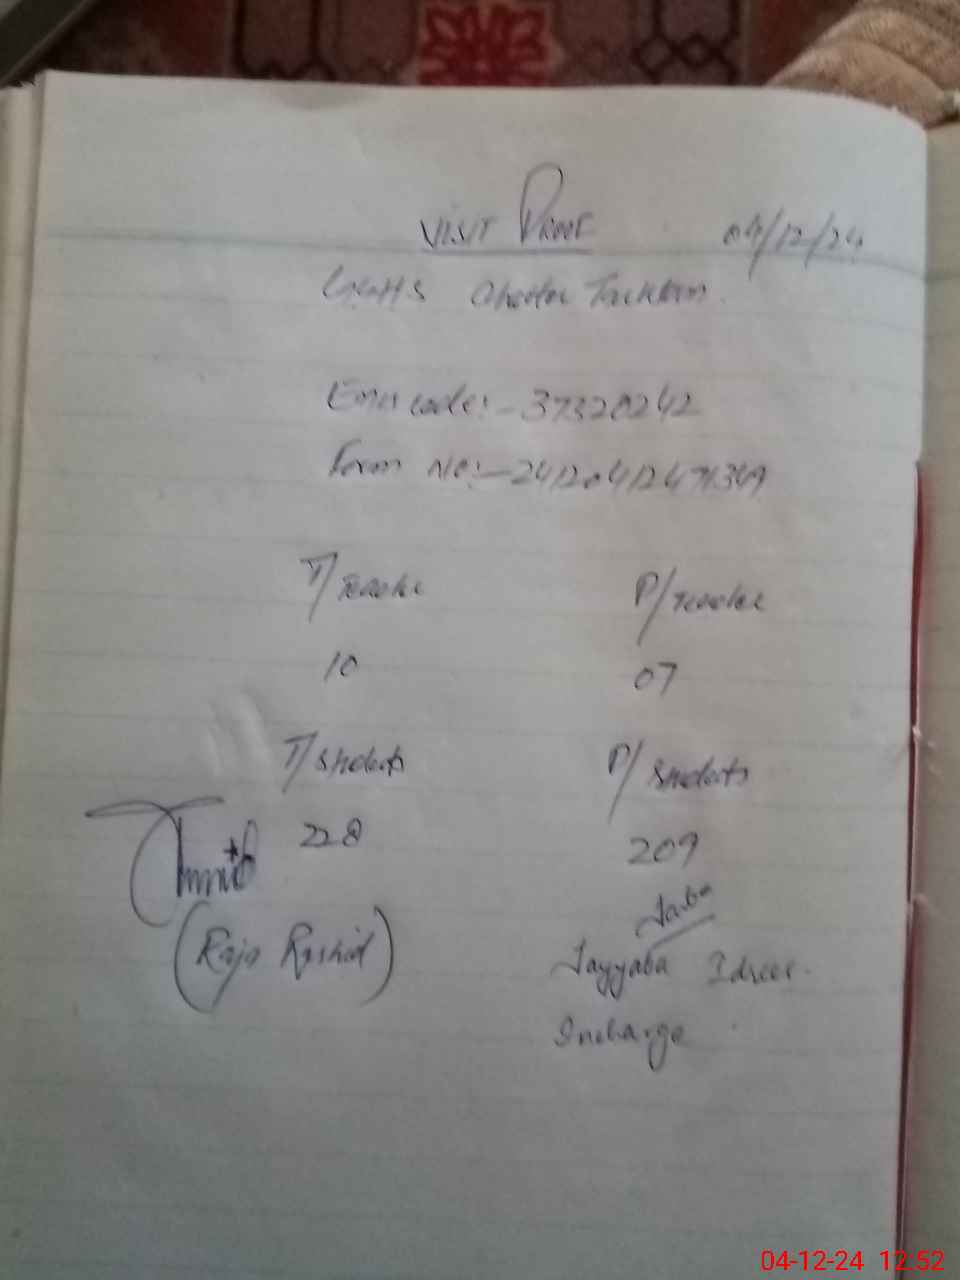 VISIT PROOF 04/12/24
GGHS
Emis code:- 37320242
Form No:- 24120412471349
T/Teache P/Teache
10 07
T/Students P/Students
228 209
(Raja Rashid)
Tayyaba Idrees.
Incharge
04-12-24 12:52